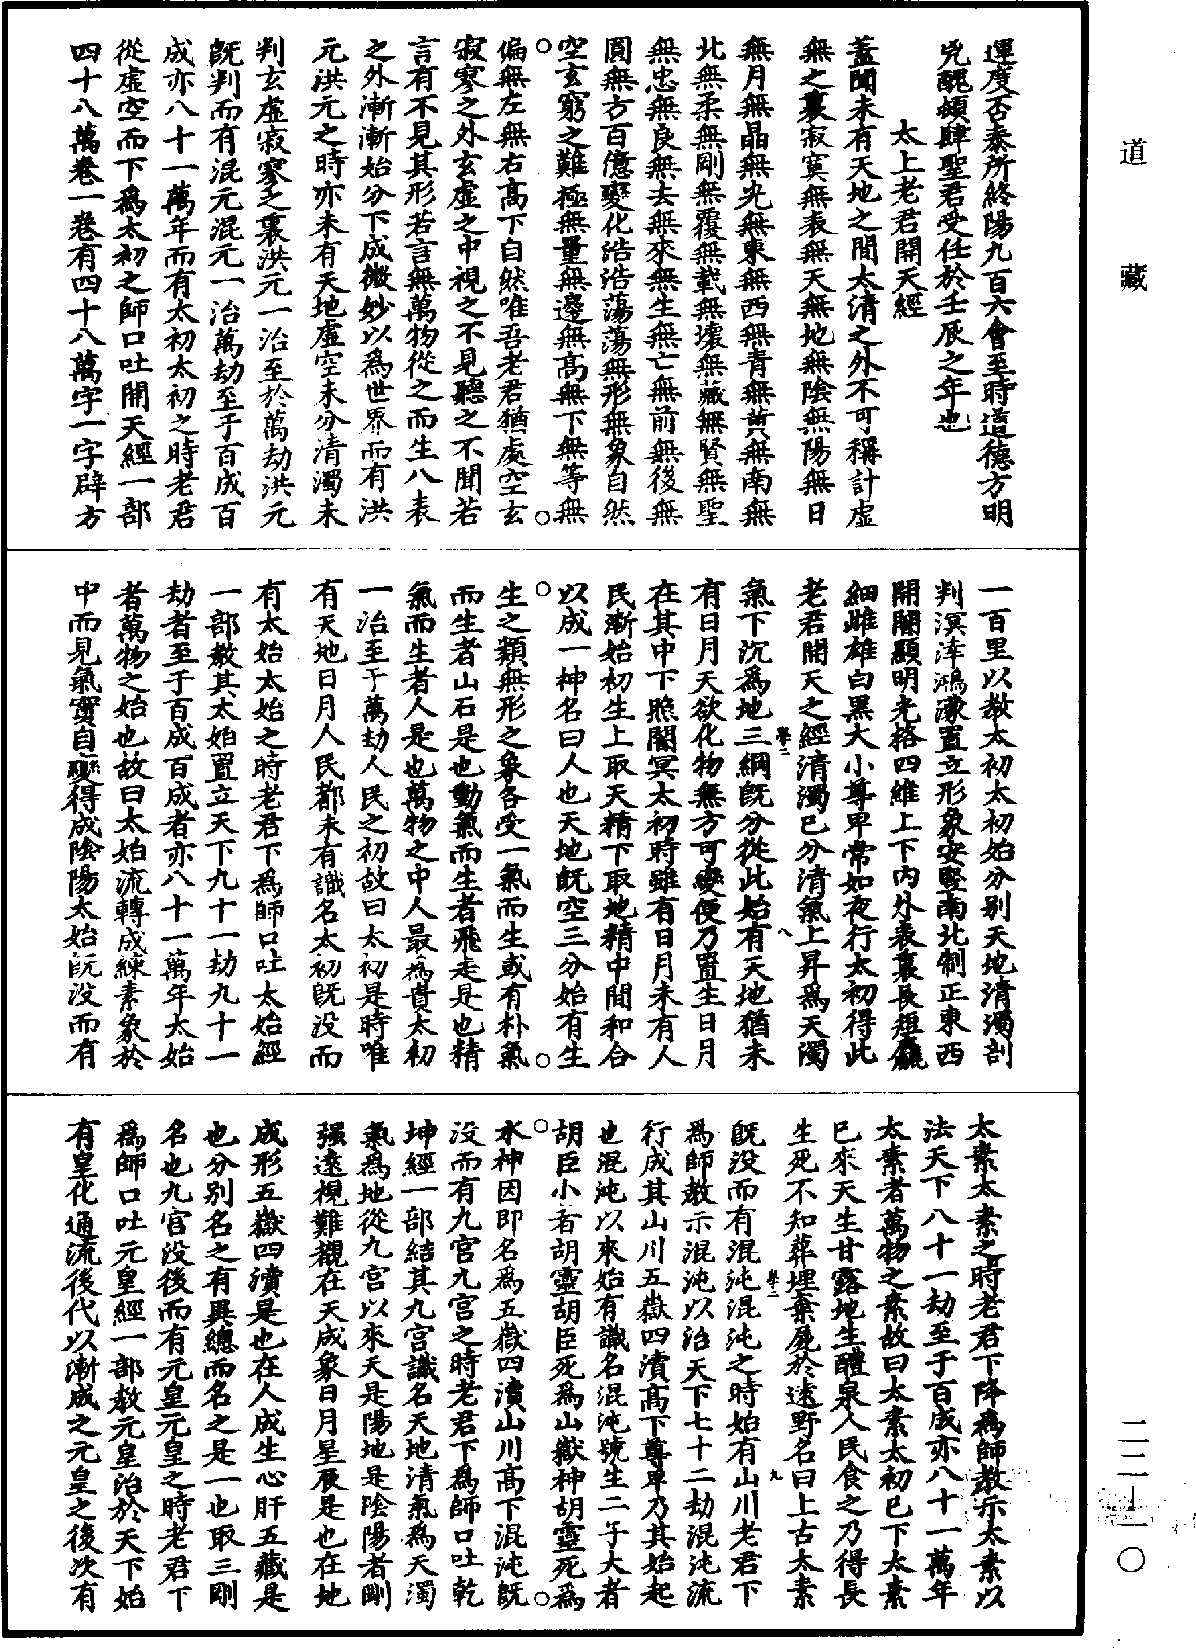 道藏
二二—一〇
運度否泰所終陽九百六會至時道德方明
兇醜頓肆聖君受任於壬辰之年也
太上老君開天經
蓋聞未有天地之間太清之外不可稱計虛
無之裏寂寞無表無天無地無陰無陽無日
無月無晶無光無東無西無青無黃無南無
北無柔無剛無覆無載無壞無藏無賢無聖
無忠無良無去無來無生無亡無前無後無
圓無方百億變化浩浩蕩蕩無形無象自然
空玄窮之難極無量無邊無高無下無等無
偏無左無右高下自然唯吾老君猶處空玄
寂寥之外玄虛之中視之不見聽之不聞若
言有不見其形若言無萬物從之而生八表
之外漸漸始分下成微妙以爲世界而有洪
元洪元之時亦未有天地虛空未分清濁未
判玄虛寂寥之裏洪元一治至於萬劫洪元
旣判而有混元混元一治萬劫至于百成百
成亦八十一萬年而有太初太初之時老君
從虛空而下爲太初之師口吐開天經一部
四十八萬卷一卷有四十八萬字一字辟方
一百里以教太初太初始分別天地清濁剖
判溟涬鴻濛置立形象安竪南北制正東西
開闇顯明光格四維上下內外表裏長短麤
細雌雄白黑大小尊卑常如夜行太初得此
老君開天之經清濁已分清氣上昇爲天濁
氣下沉爲地三綱旣分從此始有天地猶未
學二
八
有日月天欲化物無方可變便乃置生日月
在其中下照闇冥太初時雖有日月未有人
民漸始初生上取天精下取地精中間和合
以成一神名曰人也天地旣空三分始有生
生之類無形之象各受一氣而生或有朴氣
而生者山石是也動氣而生者飛走是也精
氣而生者人是也萬物之中人最爲貴太初
一治至于萬劫人民之初故曰太初是時唯
有天地日月人民都未有識名太初旣没而
有太始太始之時老君下爲師口吐太始經
一部教其太始置立天下九十一劫九十一
劫者至于百成百成者亦八十一萬年太始
者萬物之始也故曰太始流轉成練素象於
中而見氣實自變得成陰陽太始旣没而有
太素太素之時老君下降爲師教示太素以
法天下八十一劫至于百成亦八十一萬年
太素者萬物之素故曰太素太初已下太素
已來天生甘露地生醴泉人民食之乃得長
生死不知葬埋棄屍於遠野名曰上古太素
旣没而有混沌混沌之時始有山川老君下
學二
九
爲師教示混沌以治天下七十二劫混沌流
行成其山川五嶽四瀆高下尊卑乃其始起
也混沌以來始有識名混沌號生二子大者
胡臣小者胡靈胡臣死爲山嶽神胡靈死爲
水神因即名爲五嶽四瀆山川高下混沌旣
没而有九宮九宮之時老君下爲師口吐乾
坤經一部結其九宮識名天地清氣爲天濁
氣爲地從九宮以來天是陽地是陰陽者剛
强遠視難覩在天成象日月星辰是也在地
成形五嶽四瀆是也在人成生心肝五藏是
也分別名之有異總而名之是一也取三剛
名也九宮没後而有元皇元皇之時老君下
爲師口吐元皇經一部教元皇治於天下始
有皇化通流後代以漸成之元皇之後次有